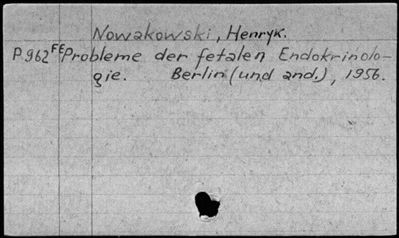 Nowakowski, Henryk.
P 962 FE Probleme der fetalen Endokrinolo-
gie. Berlin (und and.), 1956.